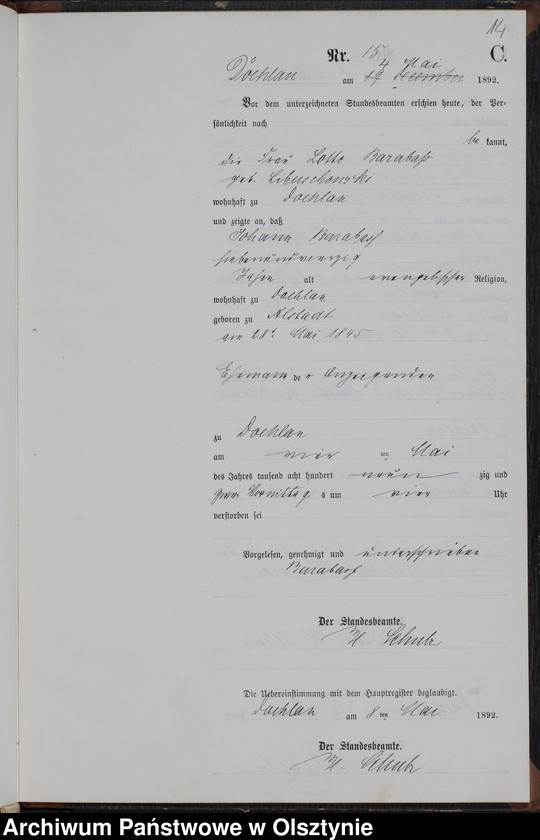 14
Nr. 15 C.
4 Mai
Döhlau am 19 Dezember 1892.
Vor dem unterzeichneten Standesbeamten erschien heute, der Per-
sönlichkeit nach
be kannt,
die Frau Lotte Barabasch
geb.
wohnhaft zu Doehlau
und zeigte an, daß
Johann Barabasch
siebenundvierzig
Jahre alt evangelischer Religion,
wohnhaft zu Doehlau
geboren zu Altstadt
am 28t Mai 1845
Ehemann de r Anzeigenden
zu Doehlau
am vier ten Mai
des Jahres tausend acht hundert neun zig und
zwei Vormittag s um vier Uhr
verstorben sei
Vorgelesen, genehmigt und unterschrieben
Barabasch
Der Standesbeamte.
Schulz
Die Uebereinstimmung mit dem Hauptregister beglaubigt.
Doehlau am 8 ten Mai 1892.
Der Standesbeamte.
Schulz
Archiwum Państwowe w Olsztynie